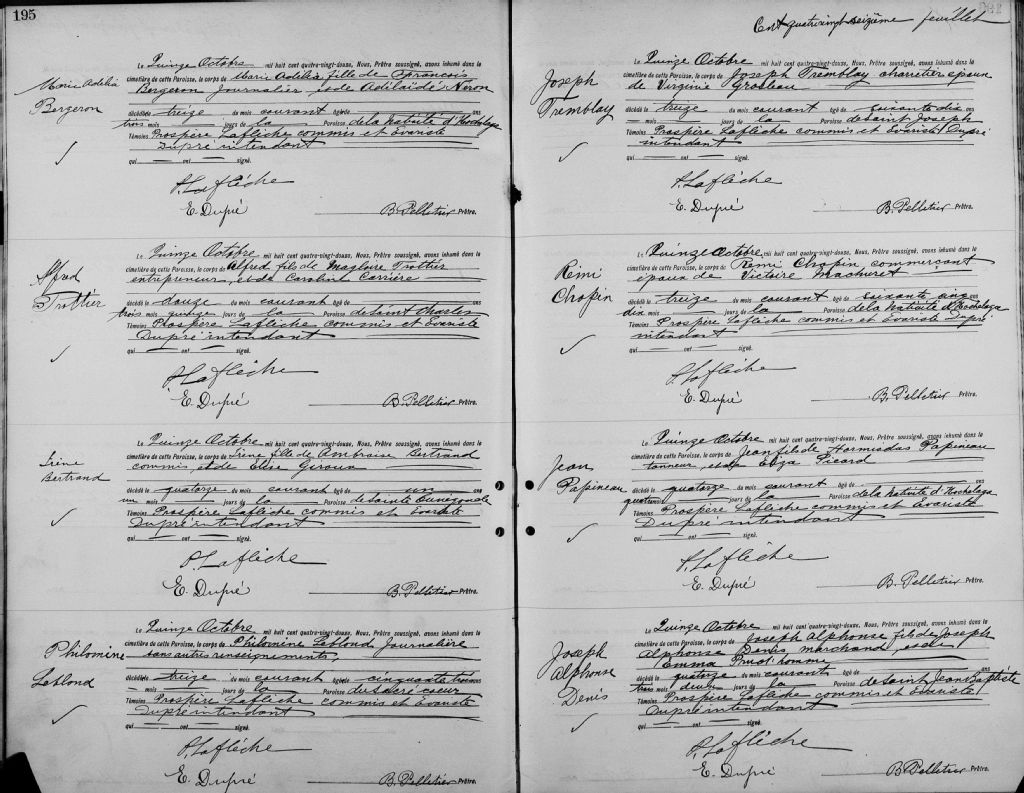 195
Marie Adélia
Bergeron
Le Quinze Octobre mil huit cent quatre-vingt-douze, Nous, Prêtre soussigné, avons inhumé dans le
cimetière de cette Paroisse, le corps de Marie Adélia fille de François
Bergeron Journalier, et de Adélaïde Néron
décédée le treize du mois courant âgée de
trois mois jours de la Paroisse de la Nativité d'Hochelaga
Témoins Prospère Laflèche commis et Évariste
Dupré intendant
qui ont signé.
P. Laflèche
E. Dupré B. Pelletier Prêtre.
Alfred
Trottier
Le Quinze Octobre mil huit cent quatre-vingt-douze, Nous, Prêtre soussigné, avons inhumé dans le
cimetière de cette Paroisse, le corps de Alfred fils de Magloire Trottier
entrepreneur, et de Caroline Carrière
décédé le douze du mois courant âgé de ans
trois mois quinze jours de la Paroisse de Saint Charles
Témoins Prospère Laflèche commis et Évariste
Dupré intendant
qui ont signé.
P. Laflèche
E. Dupré B. Pelletier Prêtre.
Irène
Bertrand
Le Quinze Octobre mil huit cent quatre-vingt-douze, Nous, Prêtre soussigné, avons inhumé dans le
cimetière de cette Paroisse, le corps de Irène fille de Ambroise Bertrand
commis, et de Elise Giroux
décédé le quatorze du mois courant âgé de un
un mois jours de la Paroisse de Sainte Cunégonde
Témoins Prospère Laflèche commis et Évariste
Dupré intendant
qui ont signé.
P. Laflèche
E. Dupré B. Pelletier Prêtre.
Philomine
Leblond
Le Quinze Octobre mil huit cent quatre-vingt-douze, Nous, Prêtre soussigné, avons inhumé dans le
cimetière de cette Paroisse, le corps de Philomine Leblond Journalière
sans autres renseignements,
décédée le treize du mois courant âgé de cinquante trois ans
mois jours de la Paroisse du Sacré coeur
Témoins Prospère Laflèche commis et Évariste
Dupré intendant
qui ont signé.
P. Laflèche
E. Dupré B. Pelletier Prêtre.
Cent quatrevingt seizième feuillet
Joseph
Tremblay
Le Quinze Octobre mil huit cent quatre-vingt-douze, Nous, Prêtre soussigné, avons inhumé dans le
cimetière de cette Paroisse, le corps de Joseph Tremblay charretier époux
de Virginie Grosleau
décédé le treize du mois courant âgé de soixante dix ans
mois jours de la Paroisse de Saint Joseph
Témoins Prospère Laflèche commis et Évariste Dupré
intendant
qui ont signé.
P. Laflèche
E. Dupré B. Pelletier Prêtre.
Rémi
Chopin
Le Quinze Octobre mil huit cent quatre-vingt-douze, Nous, Prêtre soussigné, avons inhumé dans le
cimetière de cette Paroisse, le corps de Rémi Chopin commerçant
époux de Victoire Machuret
décédé le treize du mois courant âgé de soixante cinq ans
dix mois jours de la Paroisse de la Nativité d'Hochelaga
Témoins Prospère Laflèche commis et Évariste Dupré
intendant
qui ont signé.
P. Laflèche
E. Dupré B. Pelletier Prêtre.
Jean
Papineau
Le Quinze Octobre mil huit cent quatre-vingt-douze, Nous, Prêtre soussigné, avons inhumé dans le
cimetière de cette Paroisse, le corps de Jean fils de Hormisdas Papineau
tonneur, et de Picard
décédé le quatorze du mois courant âgé de ans
quatre mois jours de la Paroisse de la Nativité d'Hochelaga
Témoins Prospère Laflèche commis et Évariste
Dupré intendant
qui ont signé.
P. Laflèche
E. Dupré B. Pelletier Prêtre.
Joseph
Alphonse
Denis
Le Quinze Octobre mil huit cent quatre-vingt-douze, Nous, Prêtre soussigné, avons inhumé dans le
cimetière de cette Paroisse, le corps de Joseph Alphonse fils de Joseph
Alphonse Denis marchand, et de
Emma Prud'homme
décédé le quatorze du mois courant âgé de ans
trois mois jours de la Paroisse de Saint Jean Baptiste
Témoins Prospère Laflèche commis et Évariste
Dupré intendant
qui ont signé.
P. Laflèche
E. Dupré B. Pelletier Prêtre.